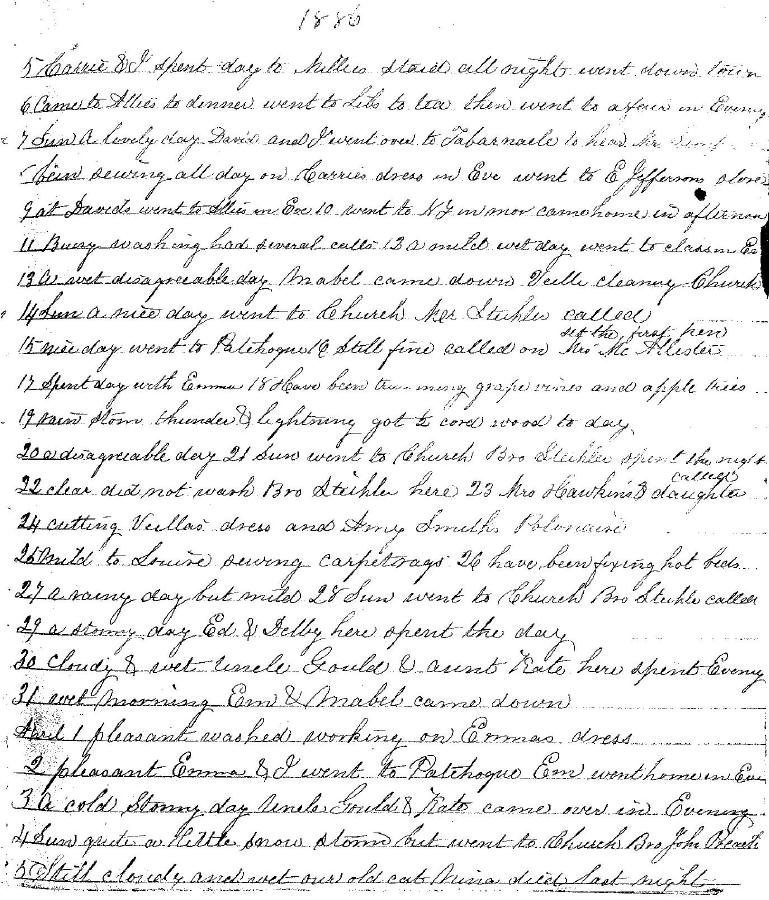 1886
5 Carrie & I spent day to Nellies staid all night went down town
6 Came to Allies to dinner went to Libs to tea then went to a fair in Evening
7 Sun A lovely day David and I went over to Tabarnacle to hear Mr
been sewing all day on Carries dress in Eve went to E Jeffersons store
9 at Davids went to Allies in Eve 10 went to NY in mor came home in afternoon
11 Busy washing had several calls 12 a mild wet day went to class in Ev
13 A wet disagreeable day Mabel came down Veille cleaning Church
14 Sun a nice day went to Church Mr Steihler called
set the first hen
15 nice day went to Patchogue 16 Still fine called on Mrs Mc Allister
17 Spent day with Emma 18 Have been trimming grape vines and apple trees
19 rain storm thunder & lightning got ½ cord wood to day
20 a disagreeable day 21 Sun went to Church Bro Steihler spent the night
called
22 clear did not wash Bro Steihler here 23 Mrs Hawkins & daughter
24 cutting Veillas dress and Amy Smiths Polonaise
25 Mild to Louise sewing carpet rags 26 have been fixing hot beds
27 a rainy day but mild 28 Sun went to Church Bro Steihle called
29 a stormy day Ed & Delby here spent the day
30 cloudy & wet Uncle Gould & aunt Kate here spent Evening
31 wet morning Em & Mabel came down
April 1 pleasant washed working on Emmas dress
2 pleasant Emma & I went to Patchogue Em went home in Eve
3 A cold Stormy day Uncle Gould & Kate came over in Evening
4 Sun quite a little snow storm but went to Church Bro John
5 Still cloudy and wet our old cat Nina died last night